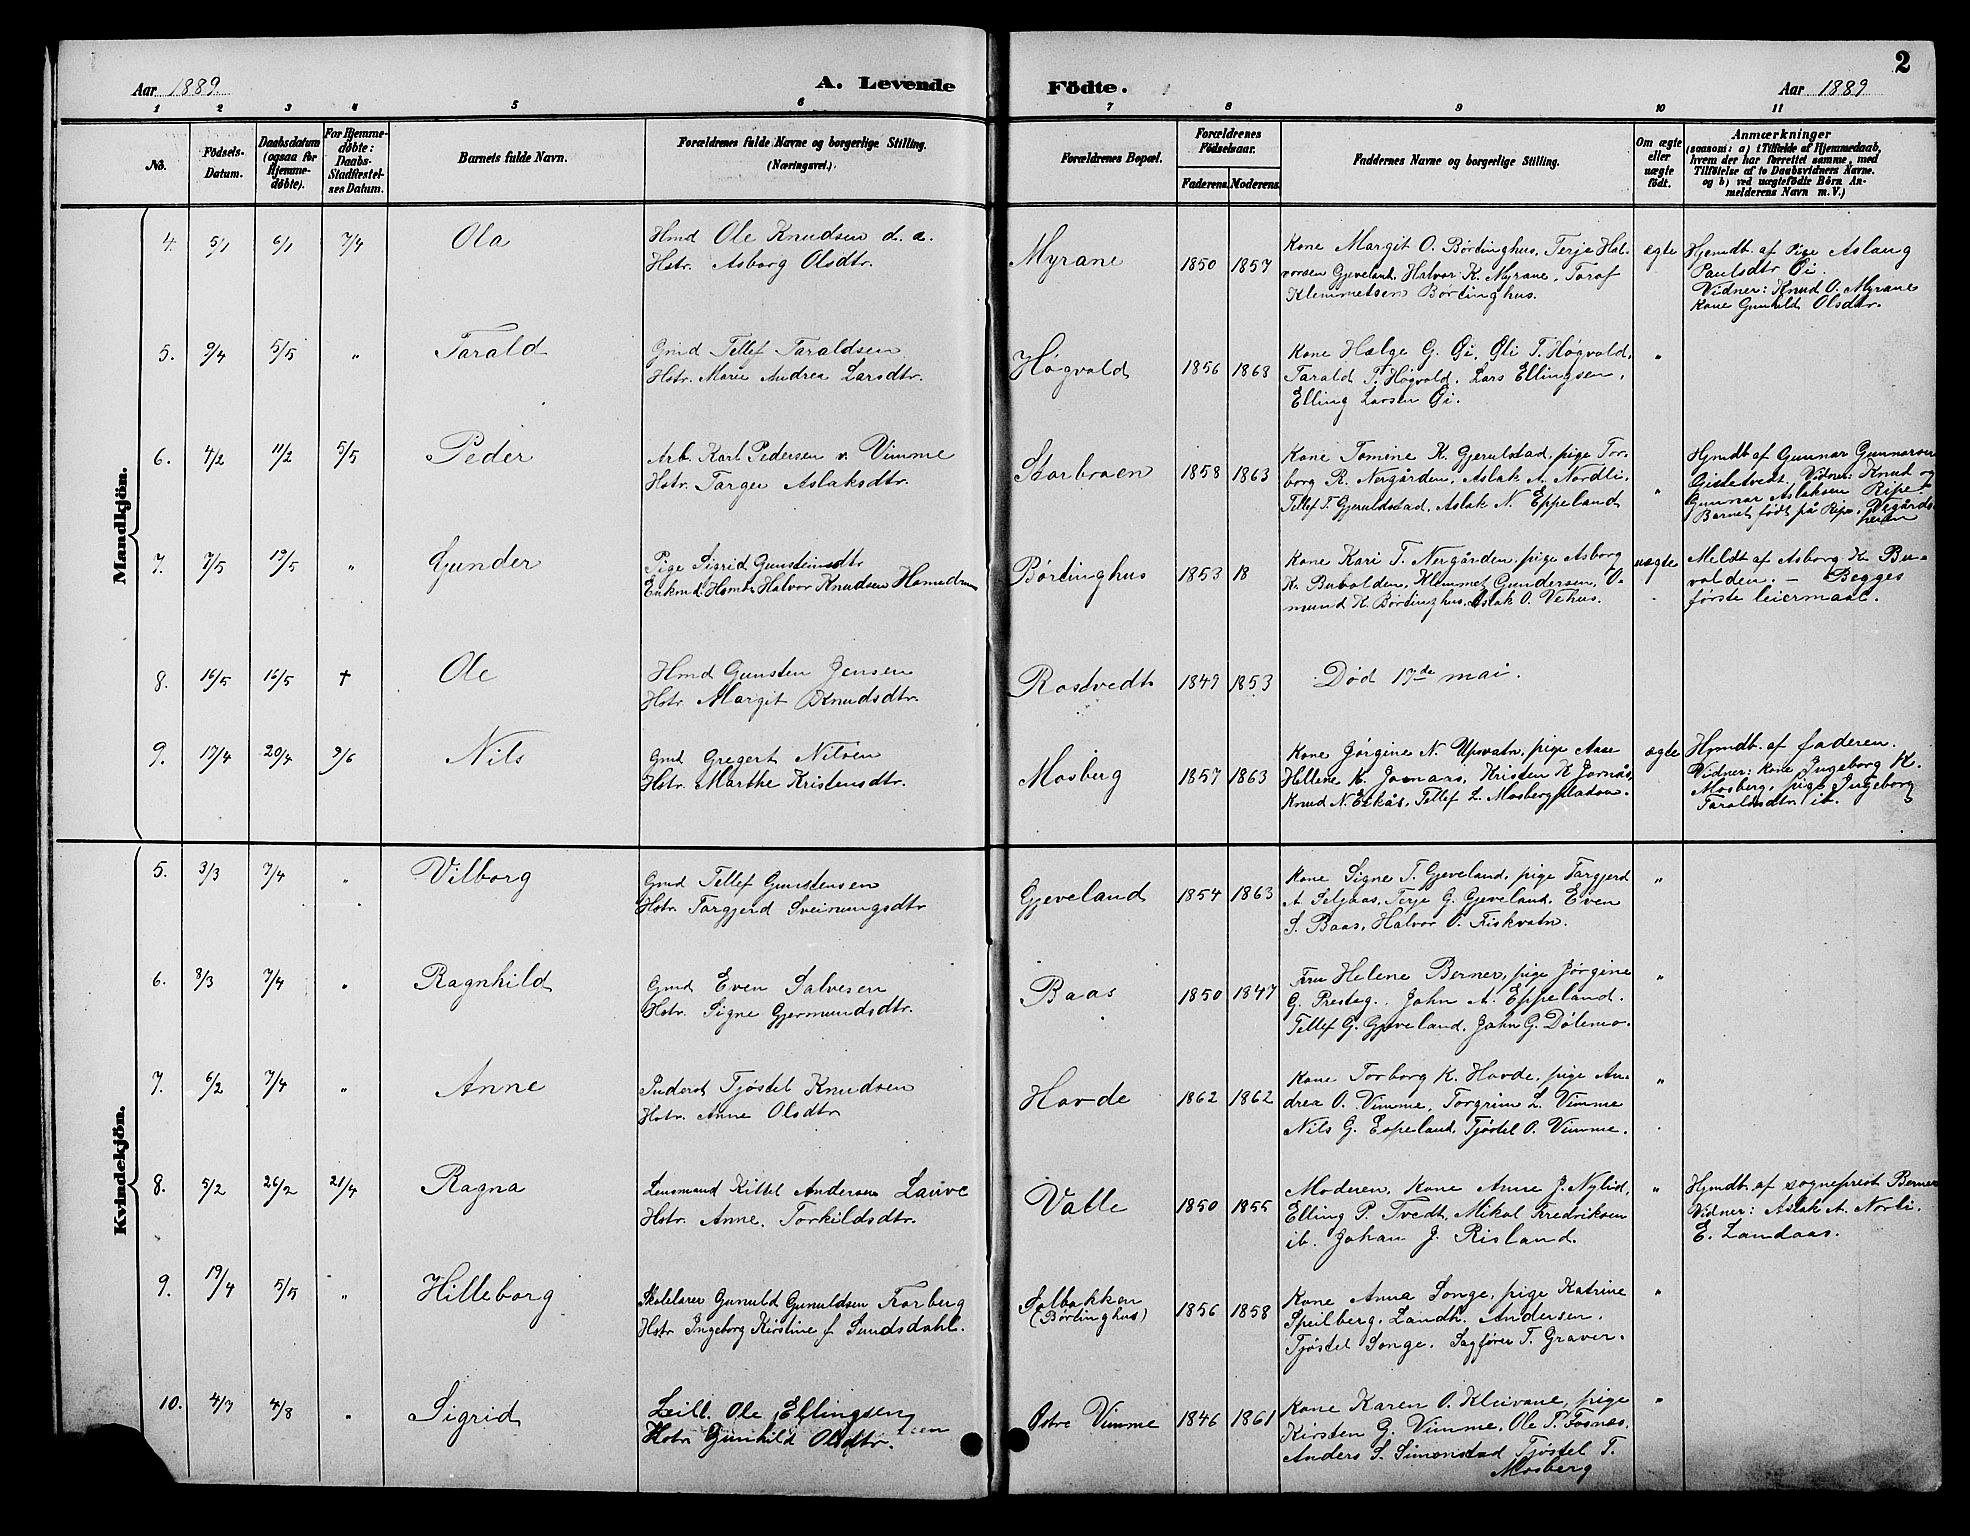 2
Aar 1889.
A. Levende
Födte.
Aar 1889
1 2 3 4 5 6 7 8 9 10 11
No.
Födsels-
Datum.
Daabsdatum
(ogsaa for
Hjemme-
döbte).
For Hjemme-
döbte:
Daabs-
Stadfæstel-
ses Datum.
Barnets fulde Navn.
Forældrenes fulde Navne og borgerlige Stilling.
(Næringsvei.)
Forældrenes Bopæl.
Forældrenes
Födselsaar.
Faderens. Moderens.
Faddernes Navne og borgerlige Stilling.
Om ægte
eller
uægte
födt.
Anmærkninger
(saasom: a) i Tilfælde af Hjemmedaab,
hvem der har forrettet samme, med
Tilföielse af to Daabsvidners Navne.
og b) ved uægtefödte Börn An-
melderens Navn m. V.)
Mandkjön.
4. 5/1 6/1 7/4 Ola
Hmd Ole Knudsen d. a.
Hstr. Asborg Olsdtr.
Myrane 1850 1857
Kone Margit O. Børtinghus, Terje Hal-
vorsen Gjeveland, Halvor K. Myrane, Taraf
Klemmetsen Børtinghus.
ægte
Hjemdb. af Pige Aslaug
Paulsdtr Øi.
Vidner: Knud O. Myrane
Kone Gunhild Olsdtr.
5. 9/4 5/5 " Tarald
Gmd Tellef Taraldsen
Hstr. Marie Andrea Larsdtr.
Høgvold 1856 1868
Kone Hælge G. Øi, Oli T. Høgvold,
Tarald T. Høgvold, Lars Ellingsen,
Elling Larsen Øi.
"
6. 4/2 11/2 5/5 Peder
Arb. Karl Pedersen v. Vimme
Hstr. Targer Aslaksdtr.
Storbroen 1858 1863
Kone Tomine K. Gjerulstad, pige Tor-
borg R. Nergården, Aslak A. Nordli,
Tellef T. Gjeruldstad, Aslak N. Eppeland
"
Hjmdbt af Gunnar Gunnarsen
Gistetvedt. Vidner: Knud og
Gunnar Aslaksen Ripe.
Barnet født på Ripe, Vegårds-
heien
7. 7/5 19/5 " Gunder
Pige Sigrid Gunsteinsdtr
Enkmd. Halvor Knudsen
Børtinghus 1853 18
Kone Kari T. Nergården, pige Asborg
K. Buvolden, Klemmet Gundersen, O-
mund K. Børtinghus, Aslak O. Vehus.
uægte
Meldt af Asborg K. Bu-
volden. – Begges
første leiermaal.
8. 16/5 16/5 † Ole
Hmd Gunsten Jensen
Hstr. Margit Knudsdtr.
Rostvedt 1849 1853
Død 17de mai.
9. 17/4 20/4 9/6 Nils
Gmd Gregert Nilsen
Hstr. Marthe Kristensdtr.
Mosberg 1857 1863
Kone Jørgine N. Upsvatn, pige Aase
Hellene K. Jomaas, Kristen K. Jomås,
Knud N. Eskås, Tellef L. Mosberg
ægte
Hjmdb. af faderen.
Vidner: kone Ingeborg K.
Mosberg, pige Ingeborg
Taraldsdtr ib.
Kvindekjön.
5. 3/3 7/4 " Vilborg
Gmd Tellef Gunstensen
Hstr. Targjerd Sveinungsdtr
Gjeveland 1854 1863
Kone Signe T. Gjeveland, pige Targjerd
A. Seljaas, Terje G. Gjeveland, Even
S. Baas, Halvor O. Fiskvatn.
"
6. 8/3 7/4 " Ragnhild
Gmd Even Salvesen
Hstr. Signe Gjermundsdtr.
Baas 1850 1847
Fru Helene Berner, pige Jørgine
G. Presteg., John A. Eppeland.
Tellef G. Gjeveland, John G. Dølemo.
"
7. 6/2 7/4 " Anne
Inderst Tjøstel Knudsen
Hstr. Anne Olsdtr
Hovde 1862 1862
Kone Torborg K. Hovde, pige An-
drea O. Vimme, Torgrim L. Vimme
Nils G. Espeland, Tjøstel O. Vimme.
"
8. 5/2 26/2 21/4 Ragna
Lensmand Kittel Andersen Lauve
Hstr. Anne Torkildsdtr.
Valle 1850 1855
Moderen, Kone Anne J. Nylid,
Elling P. Tvedt, Mikal Fredriksen
ib. Johan J. Risland.
"
Hjmdb. af sogneprest Berner
Vidner: Aslak A. Norli.
E. Landaas.
9. 19/4 5/5 " Hilleborg
Skolelærer Gunuld Gunuldsen Forberg
Hstr. Ingeborg Kirstine f. Sundsdahl.
Solbakken
(Børtinghus)
1856 1858
Kone Anna Songe, pige Katrine
Speilberg, Landh. Andersen.
Tjøstel Songe. Sagfører T. Graver.
"
10. 4/7 4/8 " Sigrid
Leill. Ole Ellingsen
Hstr Gunhild Olsdtr.
Østre Vimme 1846 1861
Kone Karen O. Kleivane, pige
Kirsten G. Vimme, Ole T. Fosnæs.
Anders S. Simonstad, Tjøstel T.
Mosberg
"